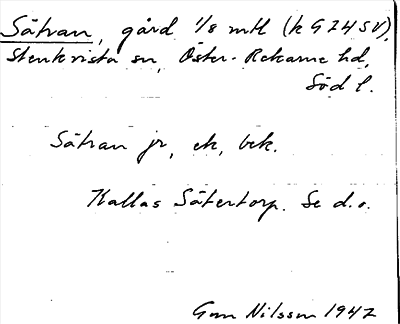 Sätran, gård 1/8 mtl (k G 24 SV),
Stenkvista sn, Öster-Rekarne hd,
Söd l.
Sätran jr, ek, bek.
Kallas Sätertorp. Se d.o.
Gun Nilsson 1947